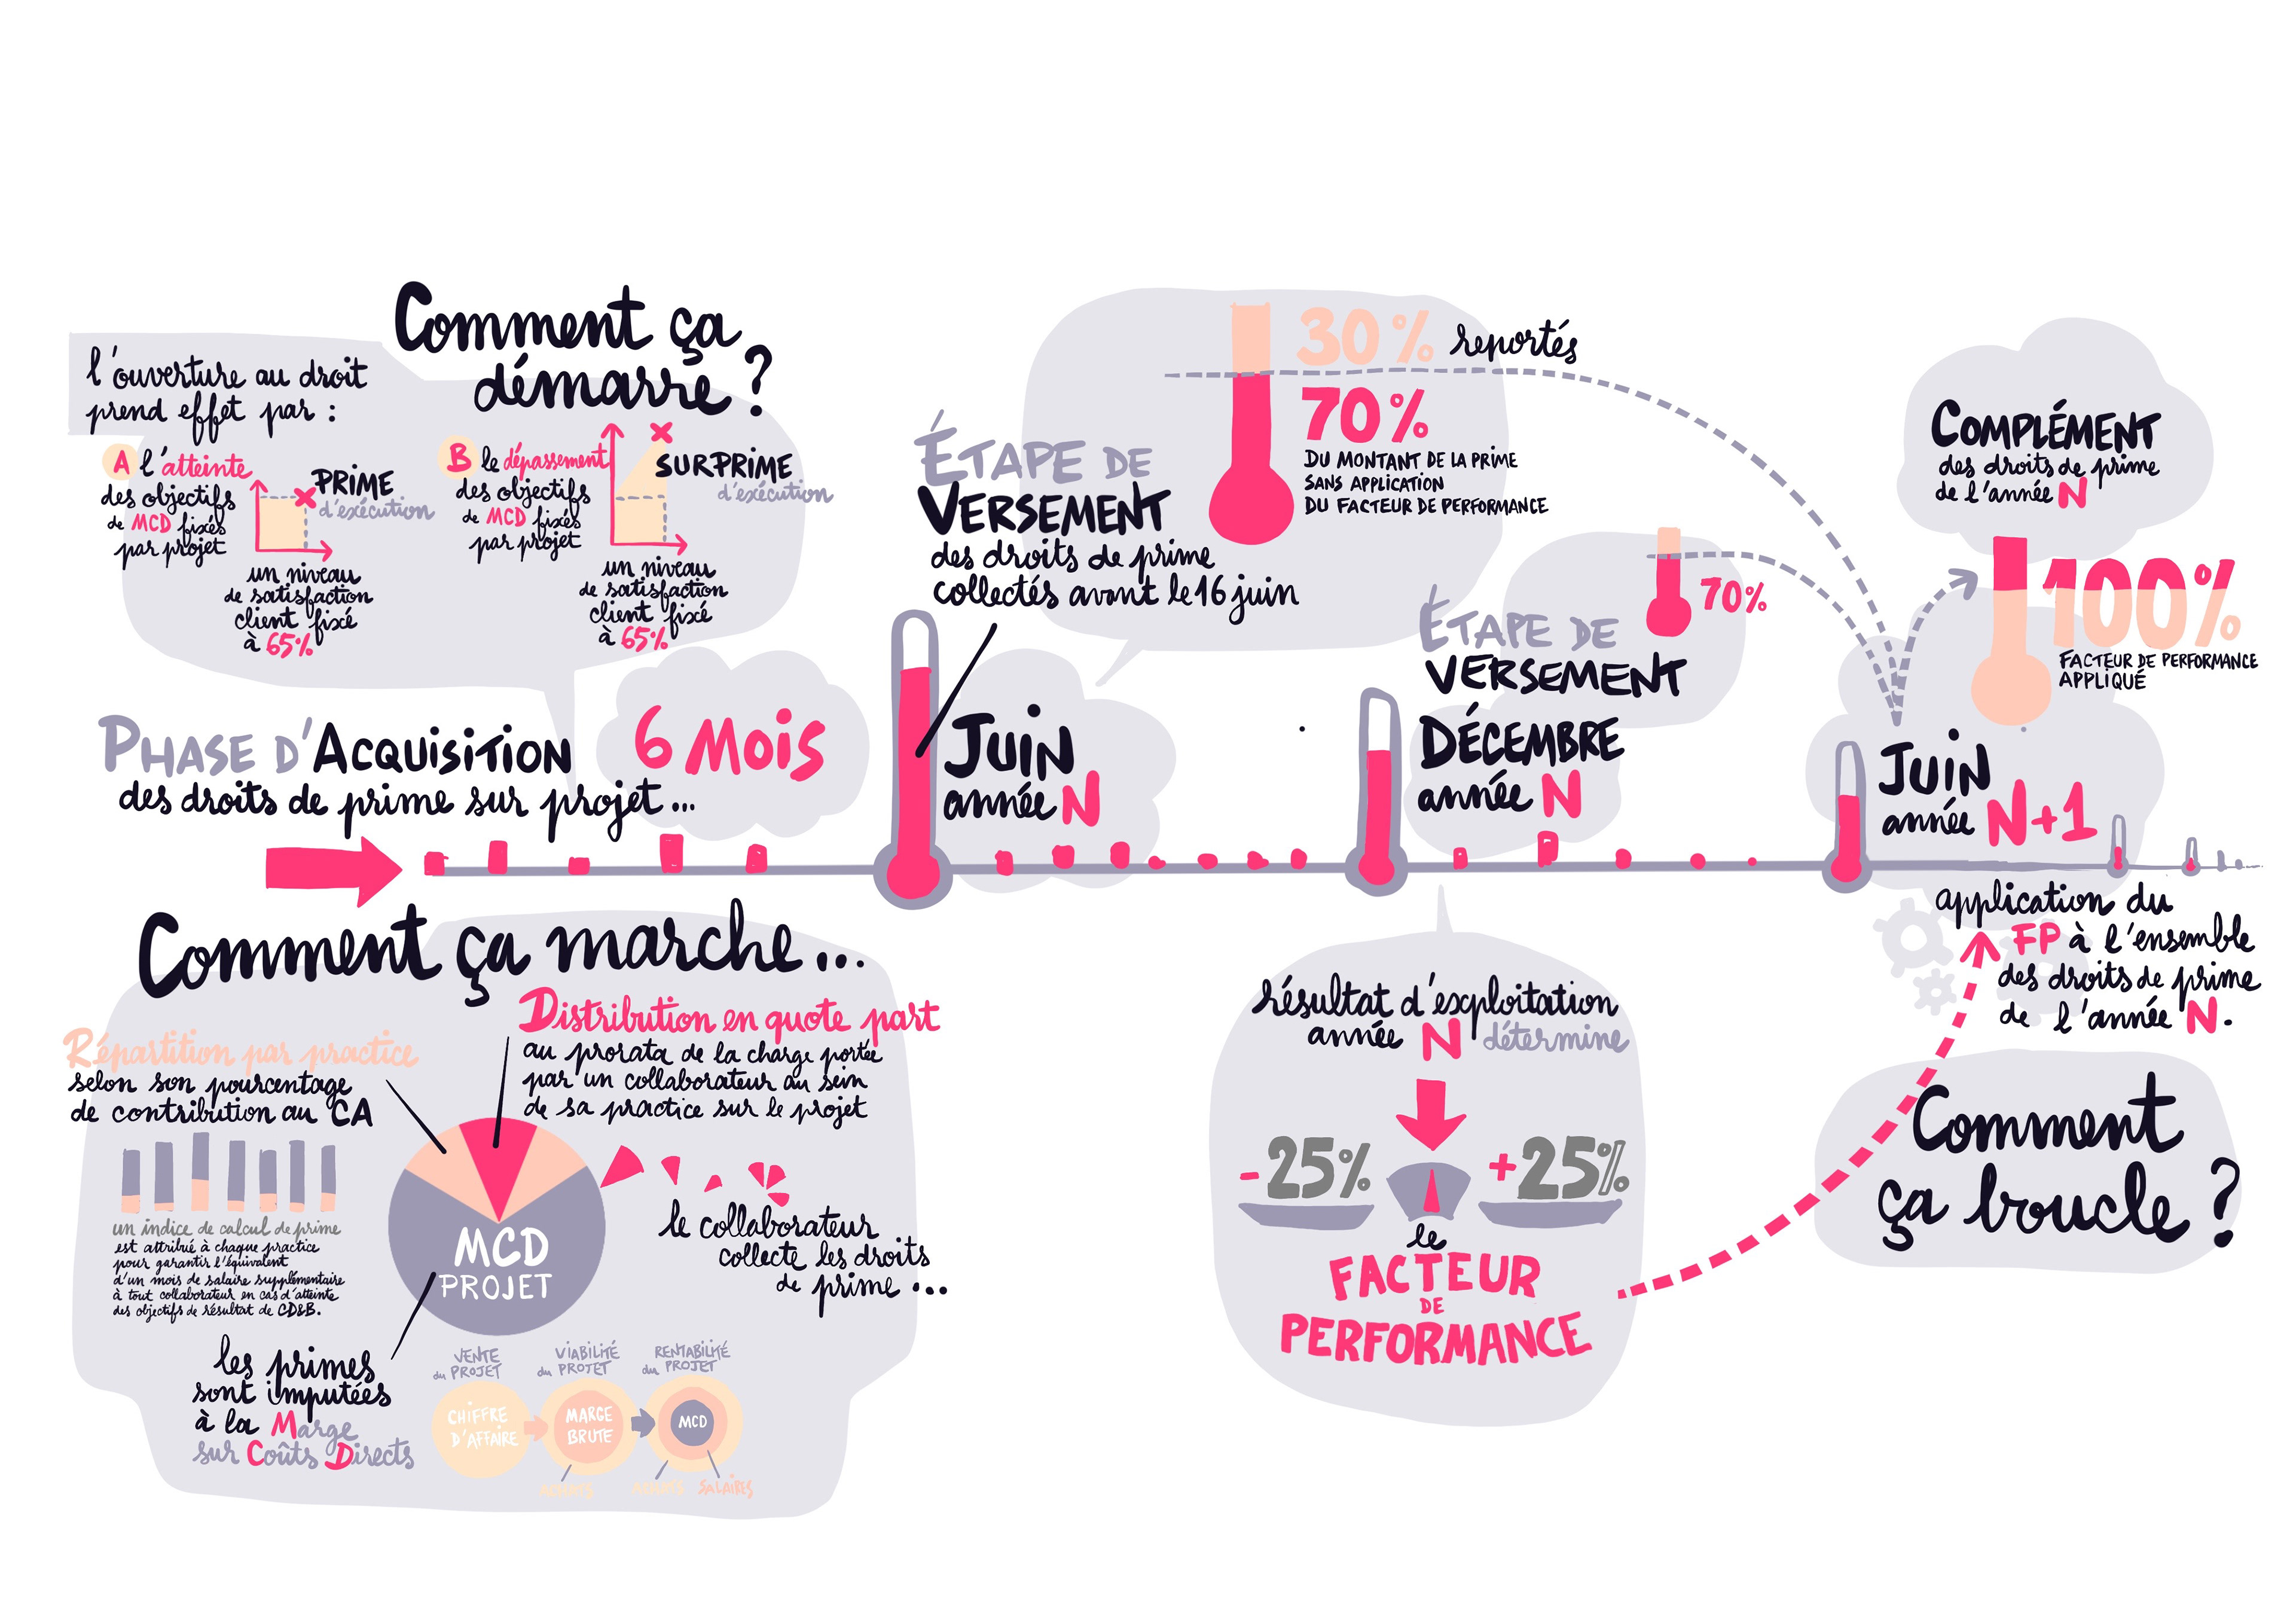 Comment ça
démarre ?
l'ouverture au droit
prend effet par :
A l'atteinte
des objectifs
de MCD fixés
par projet
PRIME
d'exécution
un niveau
de satisfaction
client fixé
à 65%
B le dépassement
des objectifs
de MCD fixés
par projet
SURPRIME
d'exécution
un niveau
de satisfaction
client fixé
à 65%
PHASE D'ACQUISITION
des droits de prime sur projet...
6 MOIS
ÉTAPE DE
VERSEMENT
des droits de prime
collectés avant le 16 juin
30% reportés
70%
DU MONTANT DE LA PRIME
SANS APPLICATION
DU FACTEUR DE PERFORMANCE
JUIN
année N
ÉTAPE DE
VERSEMENT
70%
DÉCEMBRE
année N
COMPLÉMENT
des droits de prime
de l'année N
100%
FACTEUR DE PERFORMANCE
APPLIQUÉ
JUIN
année N+1
application du
FP à l'ensemble
des droits de prime
de l'année N.
Comment
ça boucle ?
Comment ça marche...
Répartition par practice
selon son pourcentage
de contribution au CA
un indice de calcul de prime
est attribué à chaque practice
pour garantir l'équivalent
d'un mois de salaire supplémentaire
à tout collaborateur en cas d'atteinte
des objectifs de résultat de CD&B.
Distribution en quote part
au prorata de la charge portée
par un collaborateur au sein
de sa practice sur le projet
MCD
PROJET
le collaborateur
collecte les droits
de prime ...
les primes
sont imputées
à la Marge
sur Coûts Directs
VENTE
du PROJET
VIABILITÉ
du PROJET
RENTABILITÉ
du PROJET
CHIFFRE
D'AFFAIRE
MARGE
BRUTE
MCD
ACHATS
ACHATS
SALAIRES
résultat d'exploitation
année N détermine
-25%
+25%
le
FACTEUR
DE
PERFORMANCE